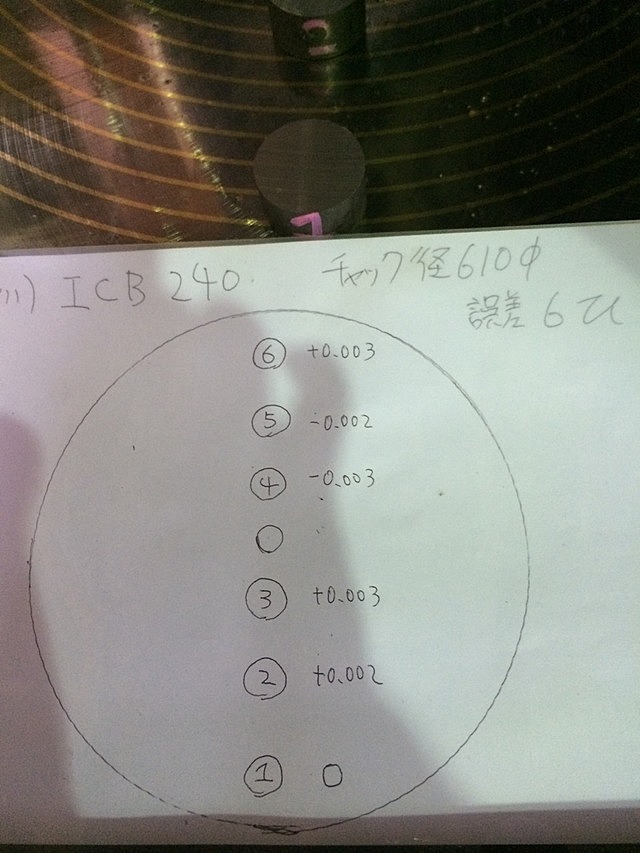 ICB 240. チャック径610φ
誤差 6
⑥ +0.003
⑤ -0.002
④ -0.003
③ +0.003
② +0.002
① 0
7